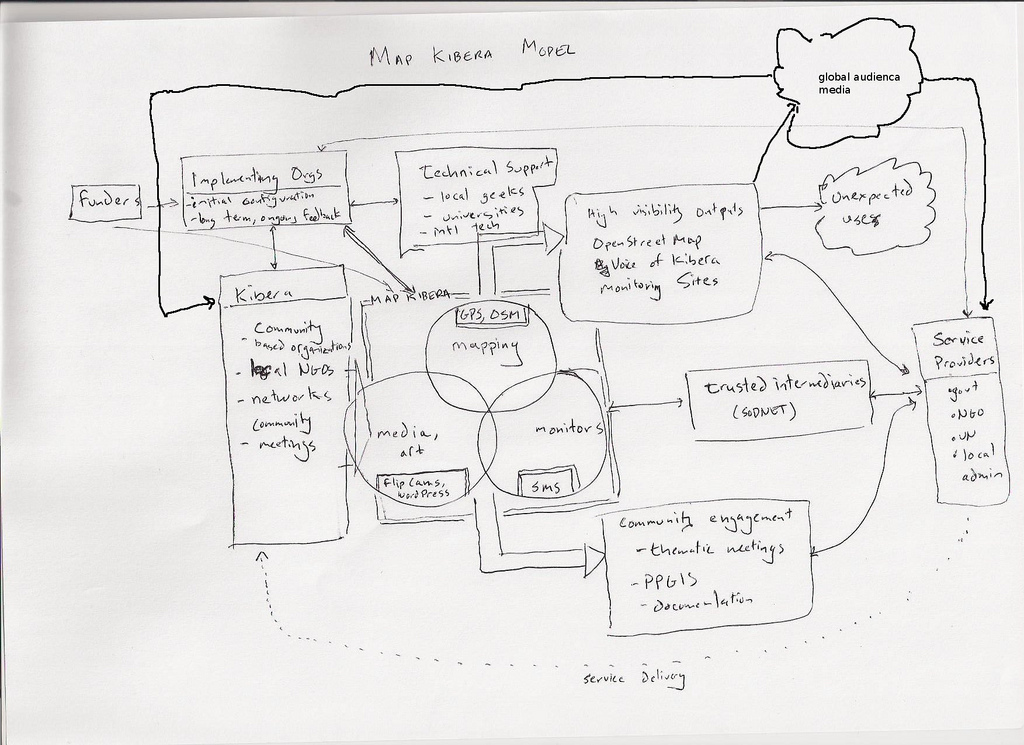 MAP KIBERA MODEL
global audienca
media
funders
Implementing Orgs
- initial configuration
- long term, ongoing feedback
Technical Support
- local geeks
- universities
- intl tech
High visibility outputs
OpenStreet Map
Voice of Kibera
Monitoring Sites
Unexpected
uses
Kibera
Community
- based organizations
- local NGOs
- networks
community
- meetings
MAP KIBERA
GPS, OSM
mapping
media,
art
flip cams,
WordPress
monitors
SMS
trusted intermediaries
(SODNET)
Service
Providers
• govt
• NGO
• UN
• local
admin
Community engagement
- thematic meetings
- PPGIS
- Documentation
service Delivery